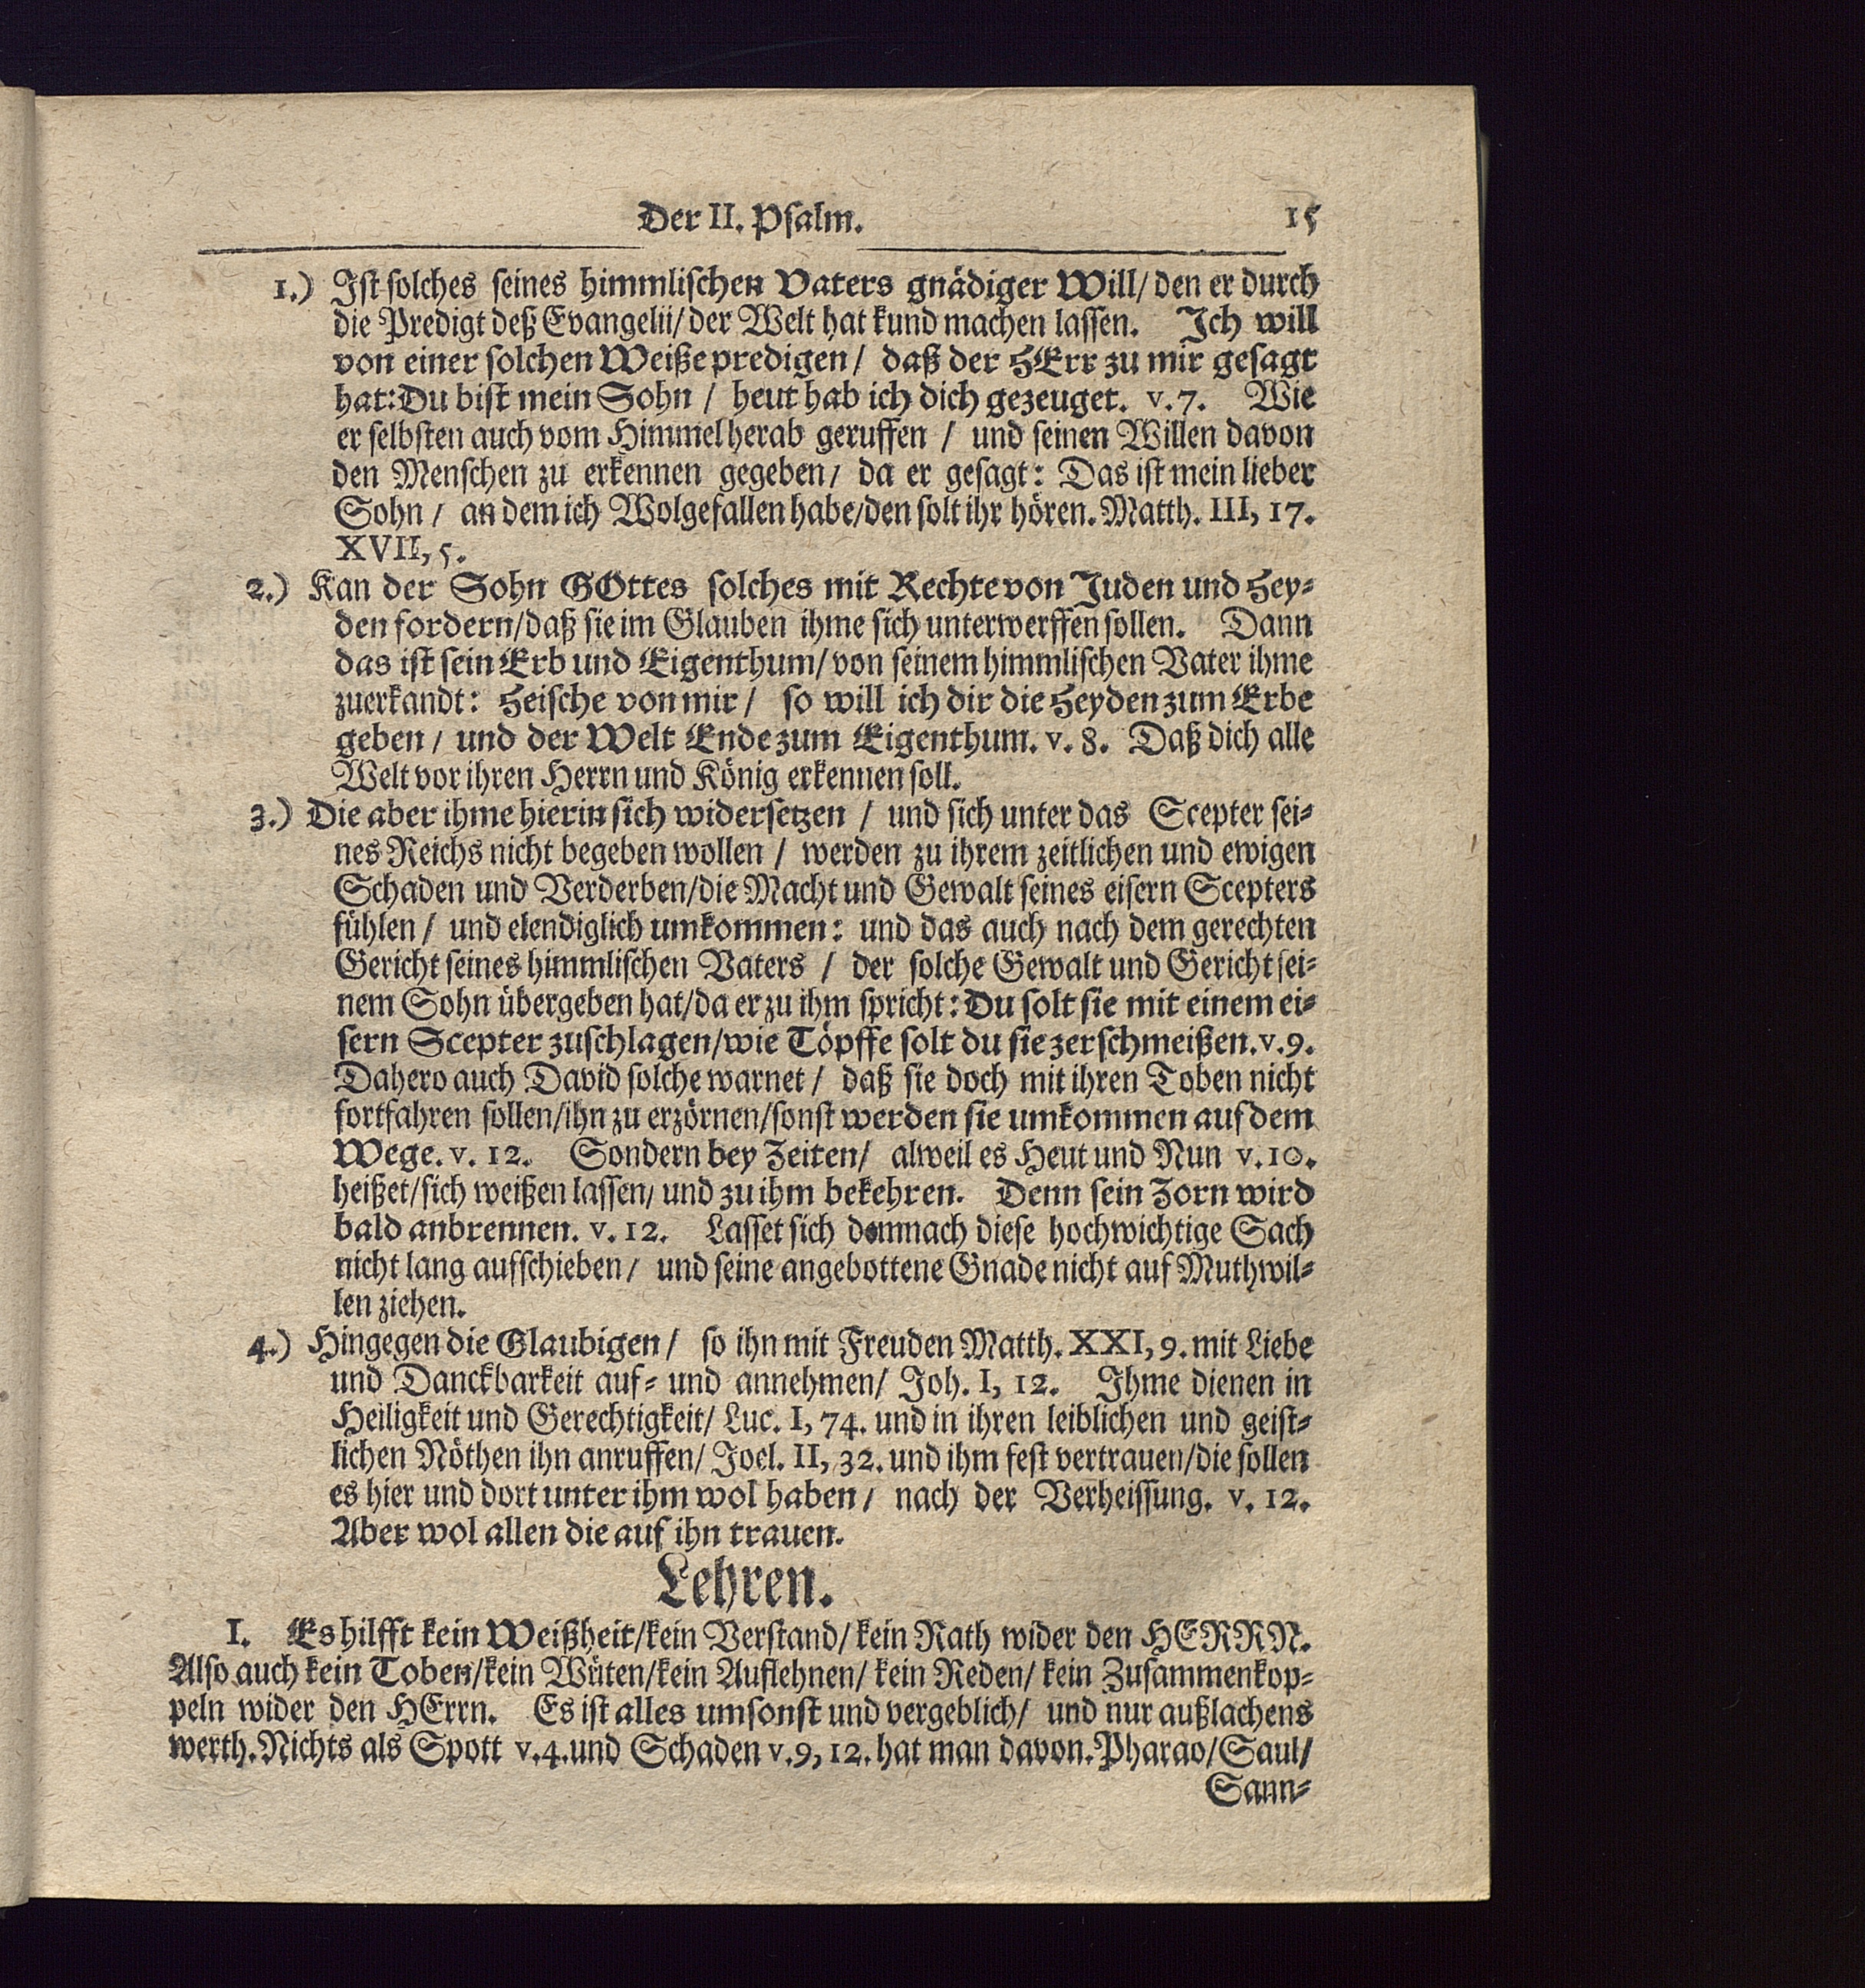 Der II. Psalm. 15
1.) Ist solches seines himmlischen Vaters gnädiger Will/ den er durch
die Predigt deß Evangelii/ der Welt hat kund machen lassen. Ich will
von einer solchen Weiße predigen/ daß der HErr zu mir gesagt
hat: Du bist mein Sohn / heut hab ich dich gezeuget. v. 7. Wie
er selbsten auch vom Himmel herab geruffen / und seinen Willen davon
den Menschen zu erkennen gegeben/ da er gesagt: Das ist mein lieber
Sohn / an dem ich Wolgefallen habe/ den solt ihr hören. Matth. III, 17.
XVII, 5.
2.) Kan der Sohn GOttes solches mit Rechte von Juden und Hey-
den fordern/ daß sie im Glauben ihme sich unterwerffen sollen. Dann
das ist sein Erb und Eigenthum/ von seinem himmlischen Vater ihme
zuerkandt: Heische von mir / so will ich dir die Heyden zum Erbe
geben / und der Welt Ende zum Eigenthum. v. 8. Daß dich alle
Welt vor ihren Herrn und König erkennen soll.
3.) Die aber ihme hierin sich widersetzen / und sich unter das Scepter sei-
nes Reichs nicht begeben wollen / werden zu ihrem zeitlichen und ewigen
Schaden und Verderben/ die Macht und Gewalt seines eisern Scepters
fühlen / und elendiglich umkommen: und das auch nach dem gerechten
Gericht seines himmlischen Vaters / der solche Gewalt und Gericht sei-
nem Sohn übergeben hat/ da er zu ihm spricht: Du solt sie mit einem ei-
sern Scepter zuschlagen/ wie Töpffe solt du sie zerschmeißen. v. 9.
Dahero auch David solche warnet / daß sie doch mit ihren Toben nicht
fortfahren sollen/ ihn zu erzörnen/ sonst werden sie umkommen auf dem
Wege. v. 12. Sondern bey Zeiten/ alweil es Heut und Nun v. 10.
heißet/ sich weißen lassen/ und zu ihm bekehren. Denn sein Zorn wird
bald anbrennen. v. 12. Lasset sich demnach diese hochwichtige Sach
nicht lang aufschieben / und seine angebottene Gnade nicht auf Muthwil-
len ziehen.
4.) Hingegen die Glaubigen / so ihn mit Freuden Matth. XXI, 9. mit Liebe
und Danckbarkeit auf- und annehmen/ Joh. I, 12. Ihme dienen in
Heiligkeit und Gerechtigkeit/ Luc. I, 74. und in ihren leiblichen und geist-
lichen Nöthen ihn anruffen/ Joel. II, 32. und ihm fest vertrauen/ die sollen
es hier und dort unter ihm wol haben / nach der Verheissung. v. 12.
Aber wol allen die auf ihn trauen.
Lehren.
I. Es hilfft kein Weißheit/ kein Verstand/ kein Rath wider den HERRN.
Also auch kein Toben/ kein Wüten/ kein Auflehnen/ kein Reden/ kein Zusammenkop-
peln wider den HErrn. Es ist alles umsonst und vergeblich/ und nur außlachens
werth. Nichts als Spott v. 4. und Schaden v. 9, 12. hat man davon. Pharao/ Saul/
Sann-